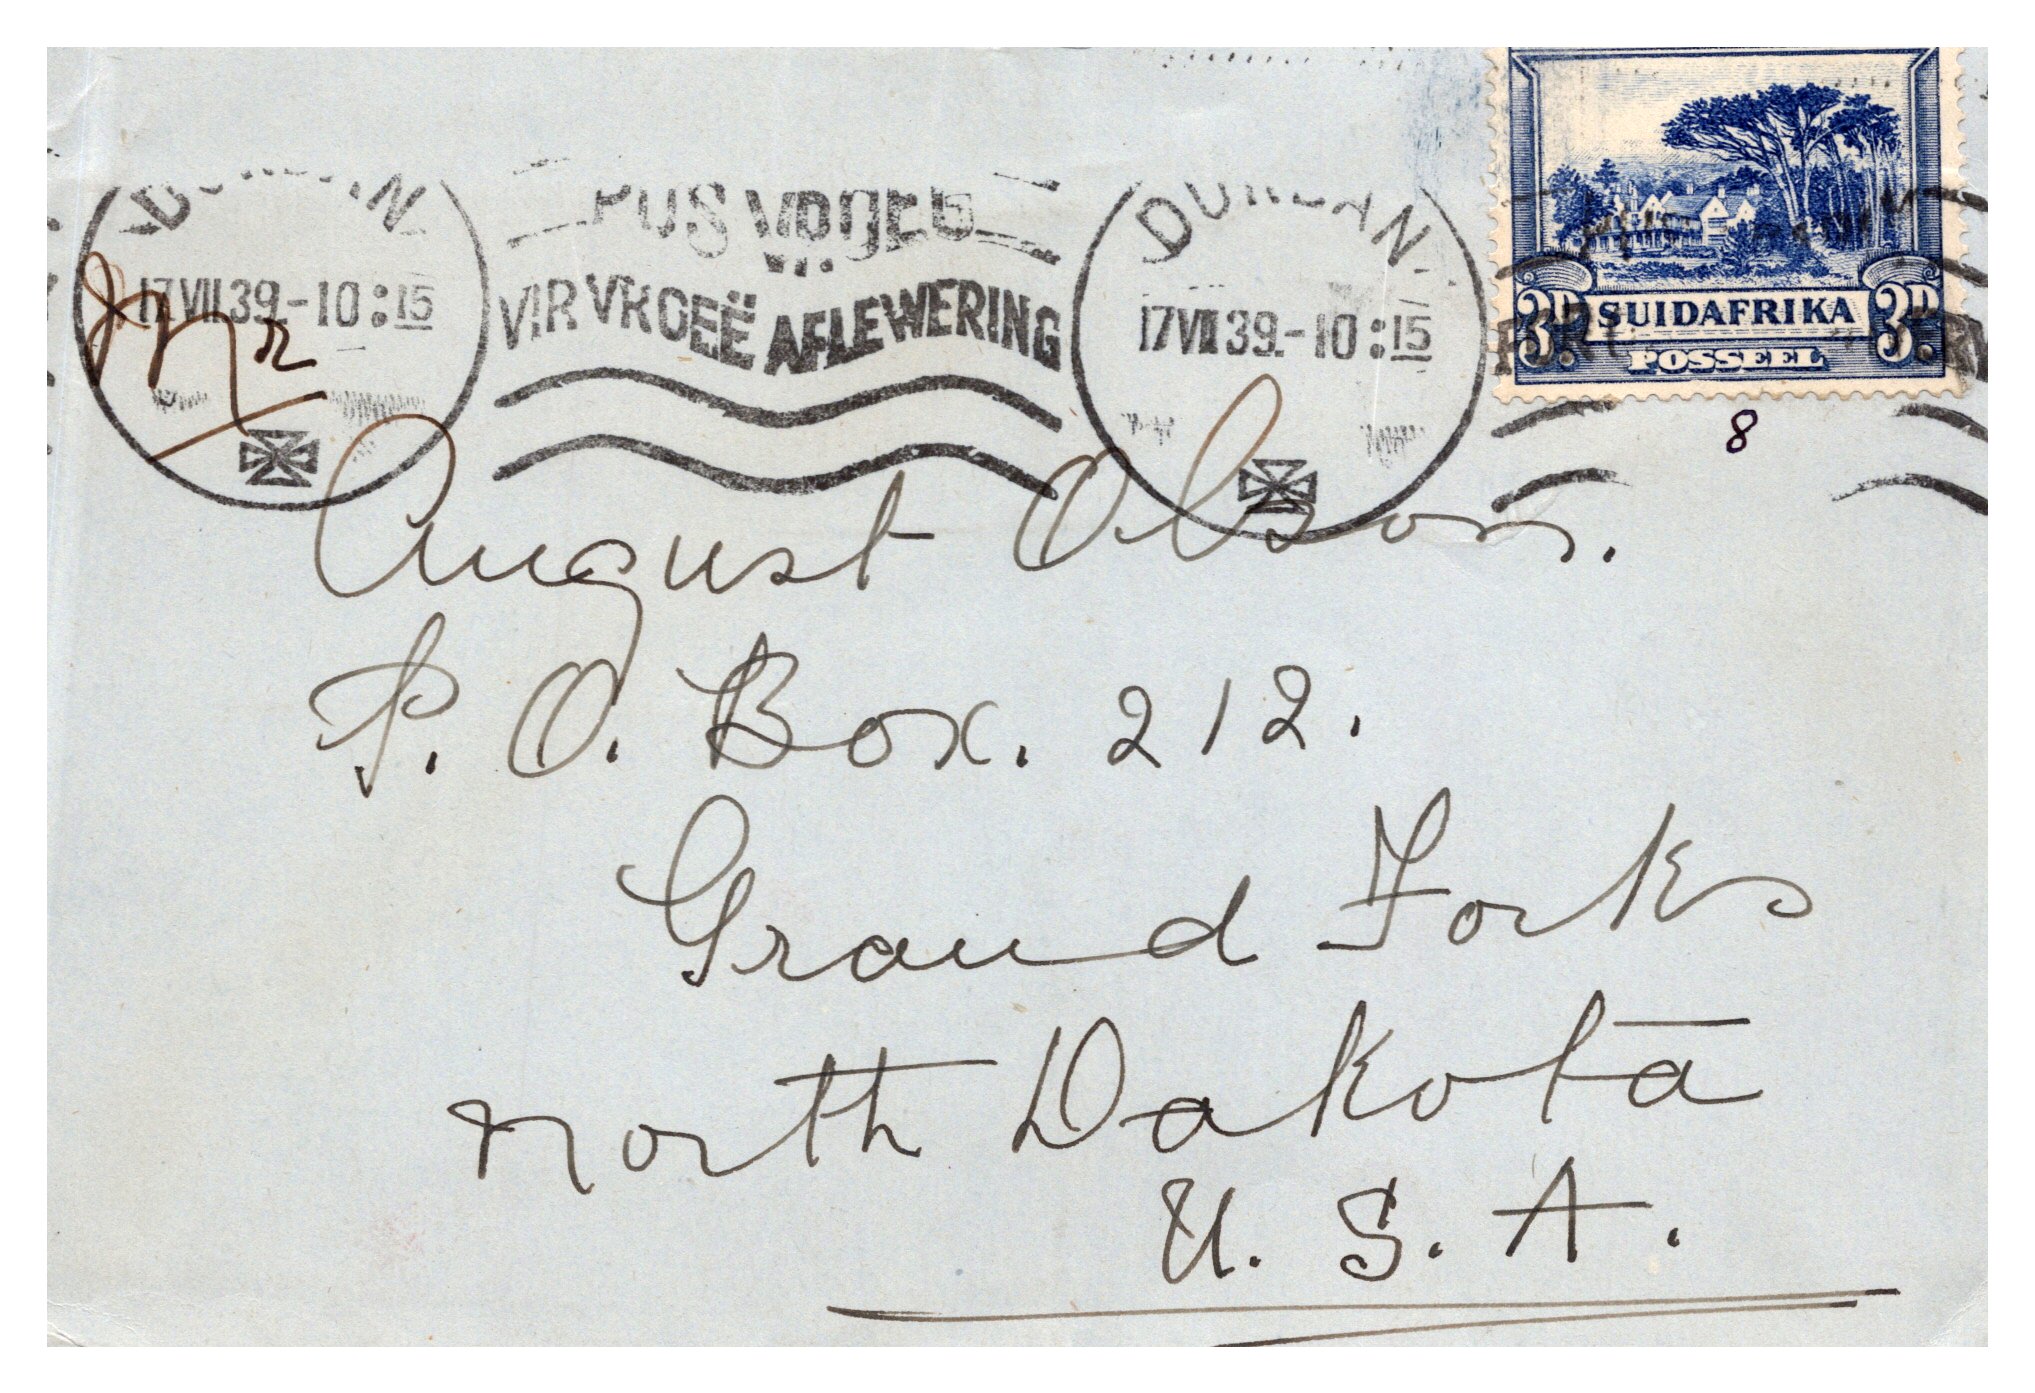 DURBAN
17 VII 39.-10:15
POS VROEG
VIR VROEË AFLEWERING
DURBAN
17 VII 39.-10:15
3D. SUIDAFRIKA 3D.
POSSEEL
8
August Olson.
P. O. Box. 212.
Grand Forks
North Dakota
U. S. A.